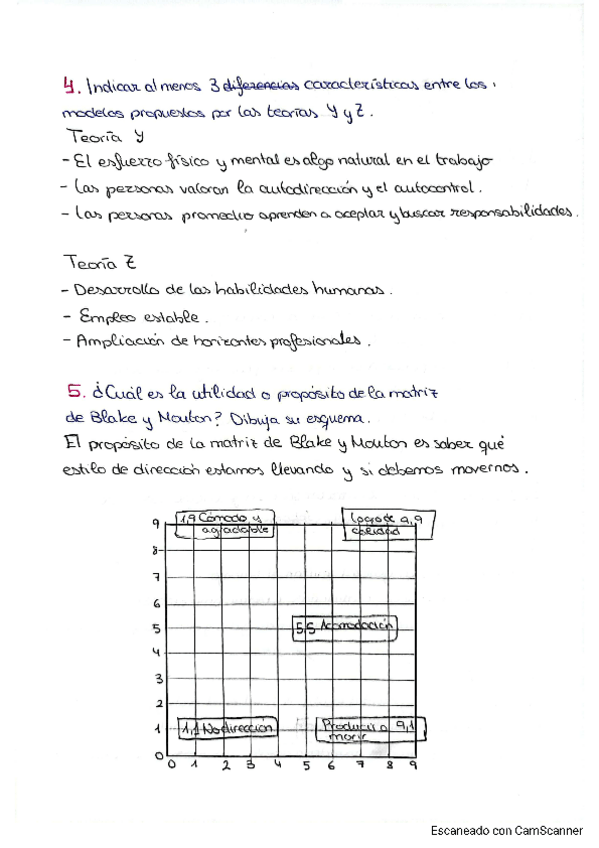 4. Indicar al menos 3 diferencias características entre los
modelos propuestos por las teorías Y y Z.
Teoría Y
- El esfuerzo físico y mental es algo natural en el trabajo
- Las personas valoran la autodirección y el autocontrol.
- Las personas promedio aprenden a aceptar y buscar responsabilidades.
Teoría Z
- Desarrollo de las habilidades humanas.
- Empleo estable.
- Ampliación de horizontes profesionales.
5. ¿Cuál es la utilidad o propósito de la matriz
de Blake y Mouton? Dibuja su esquema.
El propósito de la matriz de Blake y Mouton es saber qué
estilo de dirección estamos llevando y si debemos movernos.
9 1,9 Cómodo y agradable
Logro de 9,9 calidad
8
7
6
5 5,5 Acomodación
4
3
2
1 1,1 No dirección
Producir o 9,1 morir
0
0 1 2 3 4 5 6 7 8 9
Escaneado con CamScanner